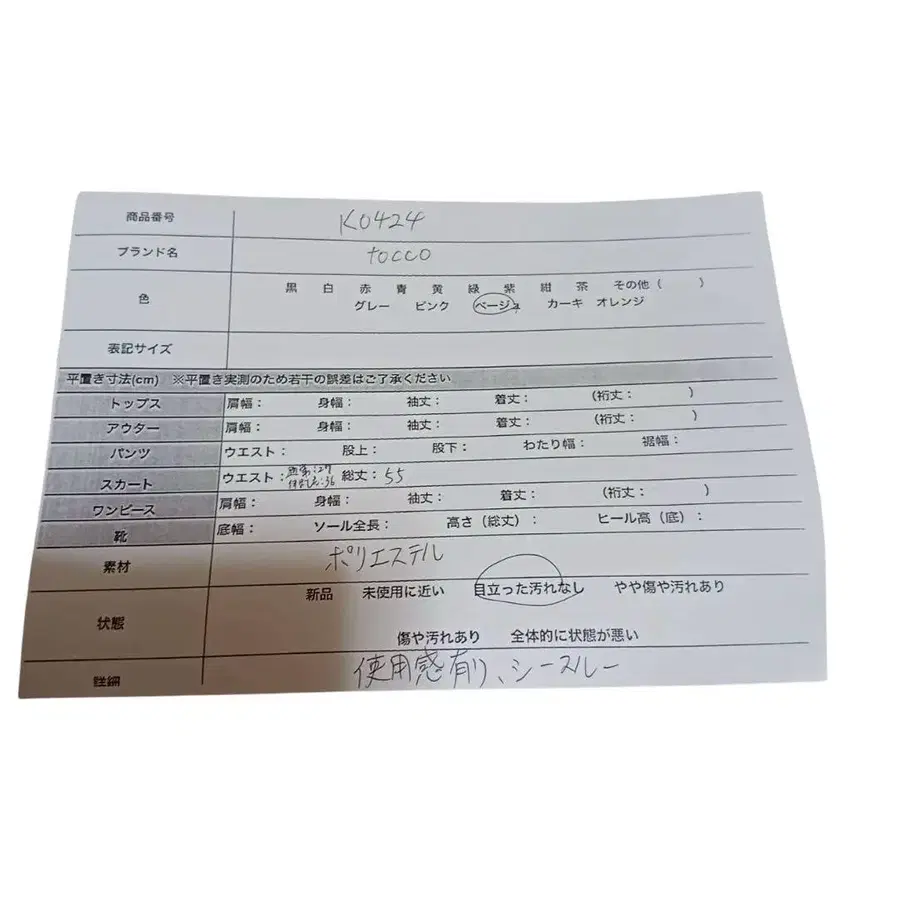 商品番号 K0424
ブランド名 tocco
色 黒 白 赤 青 黄 緑 紫 紺 茶 その他（ ）
グレー ピンク ベージュ カーキ オレンジ
表記サイズ
平置き寸法(cm) ※平置き実測のため若干の誤差はご了承ください
トップス 肩幅： 身幅： 袖丈： 着丈： （裄丈： ）
アウター 肩幅： 身幅： 袖丈： 着丈： （裄丈： ）
パンツ ウエスト： 股上： 股下： わたり幅： 裾幅：
スカート ウエスト： :27 :36 総丈： 55
ワンピース 肩幅： 身幅： 袖丈： 着丈： （裄丈： ）
靴 底幅： ソール全長： 高さ（総丈）： ヒール高（底）：
素材 ポリエステル
新品 未使用に近い 目立った汚れなし やや傷や汚れあり
状態
傷や汚れあり 全体的に状態が悪い
詳細 使用感有り、シースルー